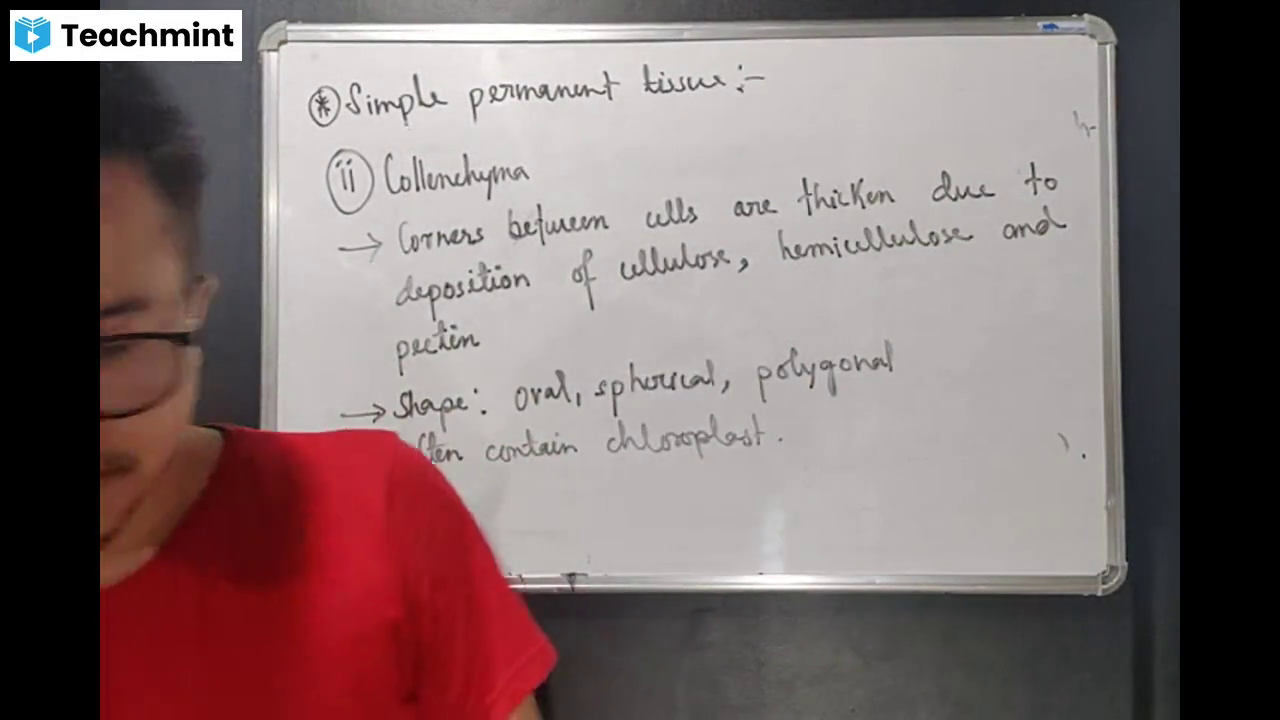 Teachmint
* Simple permanent tissue :-
ii Collenchyma
→ Corners between cells are thicken due to
deposition of cellulose, hemicellulose and
pectin
→ Shape : oval, spherical, polygonal
contain chloroplast.